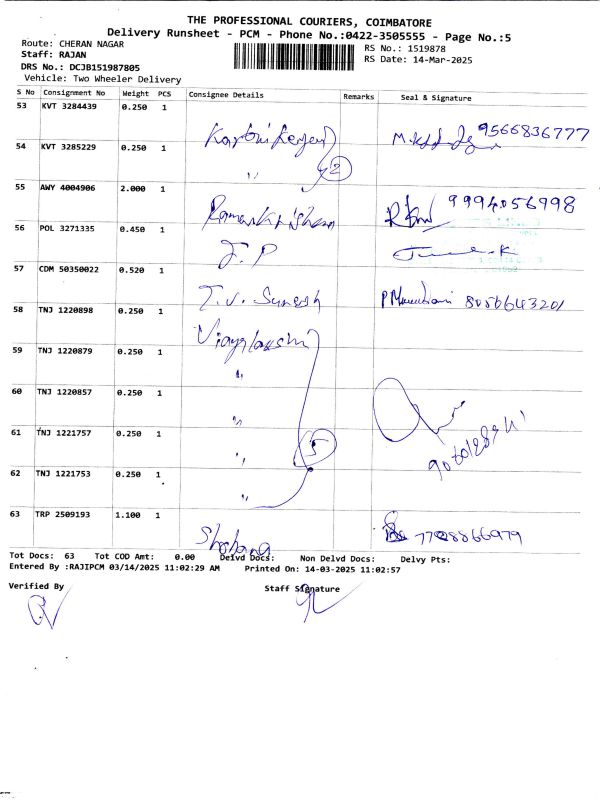 THE PROFESSIONAL COURIERS, COIMBATORE
Delivery Runsheet - PCM - Phone No.:0422-3505555 - Page No.:5
Route: CHERAN NAGAR RS No.: 1519878
Staff: RAJAN RS Date: 14-Mar-2025
DRS No.: DCJB151987805
Vehicle: Two Wheeler Delivery
S No Consignment No Weight PCS Consignee Details Remarks Seal & Signature
53 KVT 3284439 0.250 1 9566836777
54 KVT 3285229 0.250 1 " 2
55 AWY 4004906 2.000 1 9994056998
56 POL 3271335 0.450 1 J. P
57 CDM 50350022 0.520 1 T.V. Suresh 8056643201
58 TNJ 1220898 0.250 1
59 TNJ 1220879 0.250 1 "
60 TNJ 1220857 0.250 1 "
61 TNJ 1221757 0.250 1 " 5
62 TNJ 1221753 0.250 1 "
63 TRP 2509193 1.100 1
Tot Docs: 63 Tot COD Amt: 0.00 Delvd Docs: Non Delvd Docs: Delvy Pts:
Entered By :RAJIPCM 03/14/2025 11:02:29 AM Printed On: 14-03-2025 11:02:57
Verified By Staff Signature